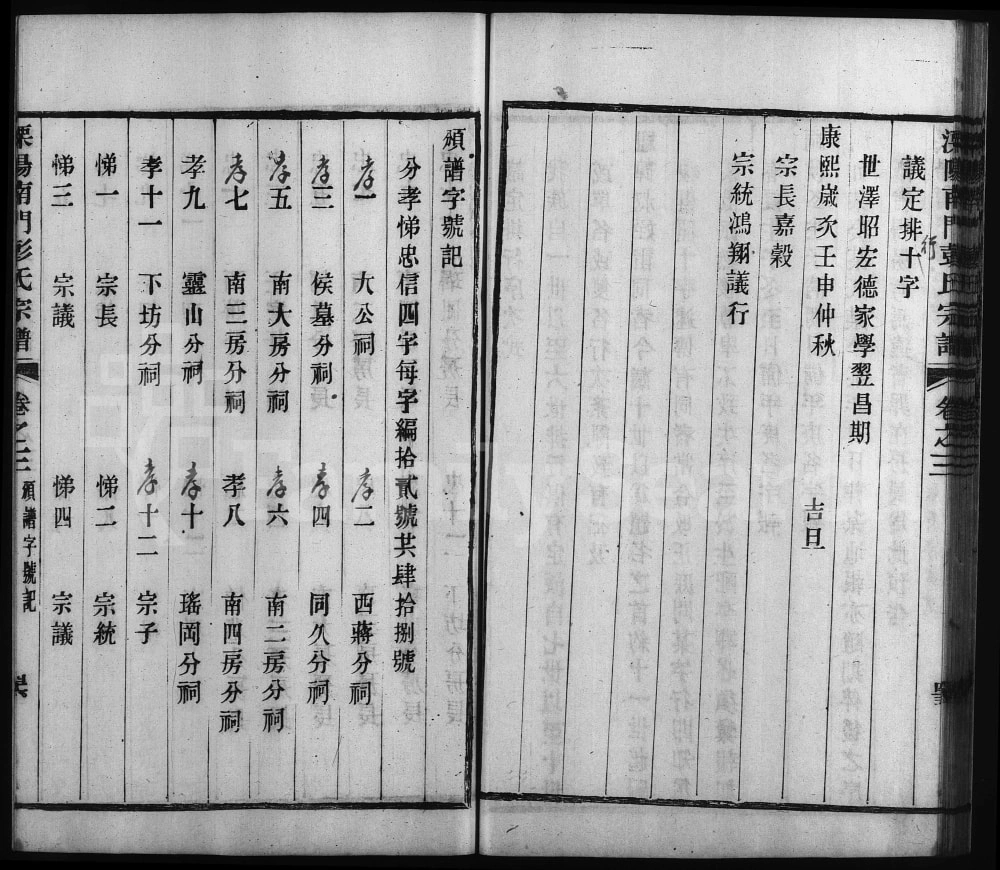 溧陽南門彭氏宗譜 卷之三
議定排行十字
世澤昭宏德家學翌昌期
康熙歲次壬申仲秋 吉旦
宗長嘉穀
宗統鴻翔議行
頒譜字號記
分孝悌忠信四字每字編拾貳號共肆拾捌號
孝一 大公祠 孝二 西蔣分祠
孝三 侯墓分祠 孝四 同久分祠
孝五 南大房分祠 孝六 南二房分祠
孝七 南三房分祠 孝八 南四房分祠
孝九 靈山分祠 孝十 瑤岡分祠
孝十一 下坊分祠 孝十二 宗子
悌一 宗長 悌二 宗統
悌三 宗議 悌四 宗議
溧陽南門彭氏宗譜 卷之三 頒譜字號記